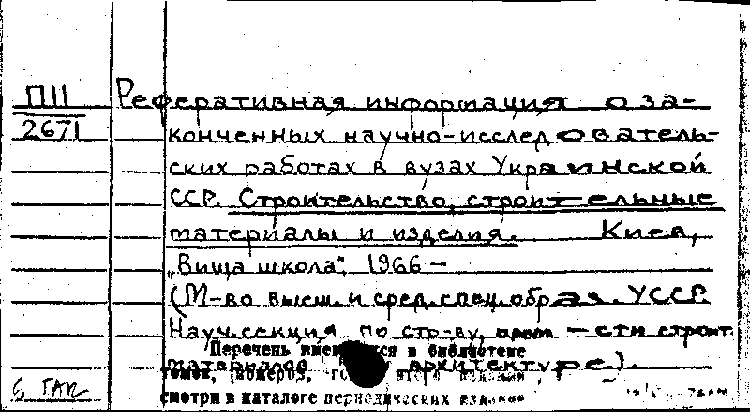 П11
2671
Реферативная информация о за-
конченных научно-исследователь-
ских работах в вузах Украинской
ССР. Строительство, строительные
материалы и изделия. Киев,
„Вища школа", 1966 —
(М-во высш. и сред. спец. образ. УССР.
Науч. секция по стр-ву, пром-сти строит.
материалов архитектуре).
Перечень имеющихся в библиотеке
томов, номеров,
смотри в каталоге периодических изданий